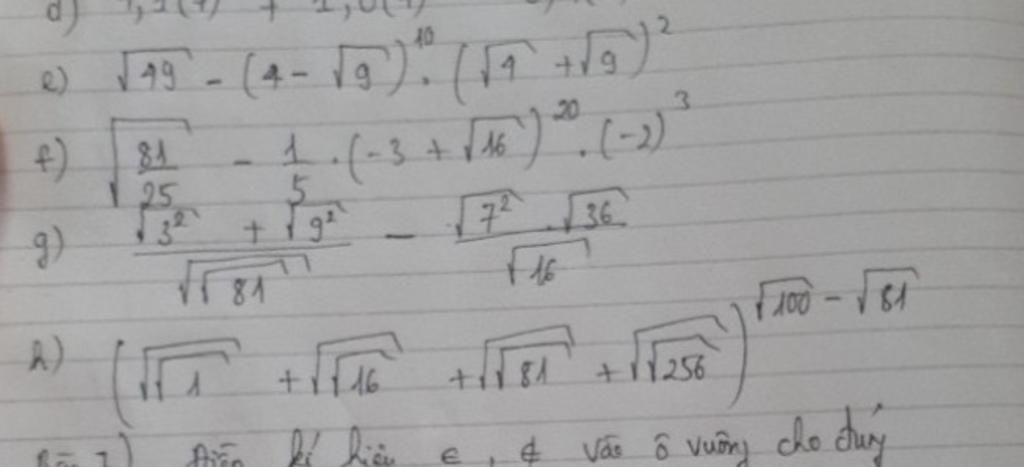 e) √49 - (4 - √9)^10 . (√4 + √9)^2
f) √(81/25) - 1/5 . (-3 + √16)^20 . (-2)^3
g) (√3² + √9²)/√√81 - (√7² . √36)/√16
h) (√√1 + √√16 + √√81 + √√256)^(√100 - √81)
Điền kí hiệu ∈, ∉ vào ô vuông cho đúng